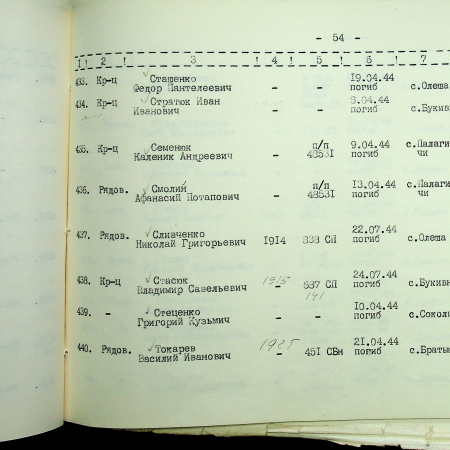 - 54 -
1! 2 ! 3 ! 4 ! 5 ! 6 ! 7
433. Кр-ц Сташенко 19.04.44
Федор Пантелеевич - - погиб с.Олеша
434. Кр-ц Стратюк Иван 8.04.44
Иванович - - погиб с.Букивн
435. Кр-ц Семенюк п/п 9.04.44 с.Палаги
Каленик Андреевич - 48531 погиб чи
436. Рядов. Смолин п/п 13.04.44 с.Палаги
Афанасий Потапович - 48531 погиб чи
437. Рядов. Сливченко 22.07.44
Николай Григорьевич 1914 838 СП погиб с.Олеша
438. Кр-ц Стасюк 1915 24.07.44
Владимир Савельевич - 687 СП погиб с.Букивн
141
439. - Стеценко 10.04.44
Григорий Кузьмич - - погиб с.Соколи
440. Рядов. Токарев 1925 21.04.44
Василий Иванович - 451 СБн погиб с.Братыш